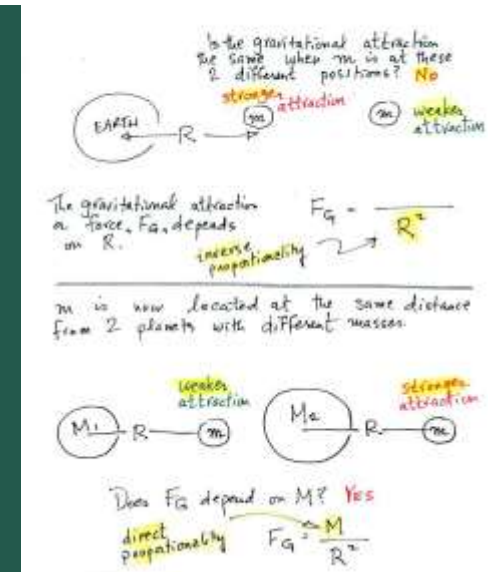 Is the gravitational attraction
the same when m is at these
2 different positions? No
stronger
attraction
EARTH
R
m
m
weaker
attraction
The gravitational attraction
or force, FG, depends
on R.
FG =
R²
inverse
proportionality
m is now located at the same distance
from 2 planets with different masses.
weaker
attraction
stronger
attraction
M1
R
m
M2
R
m
Does FG depend on M? Yes
direct
propationality
FG = M
R²